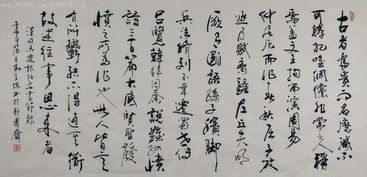 古者富貴而名磨滅不
可勝記唯倜儻非常之人稱
焉蓋文王拘而演周易
仲尼厄而作春秋屈原放
逐乃賦離騷左丘失明
厥有國語孫子臏脚
兵法脩列不韋遷蜀世傳
呂覽韓非囚秦說難孤憤
詩三百篇大底賢聖發
憤之所為作也此人皆意
有所鬱結不得通其道
故述往事思來者
漢司馬遷報任安書